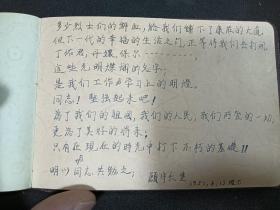 多少烈士们的鲜血，给我们铺下了康庄的大道
但下一代的幸福的生活之门，正等待我们去打开
丁佑君，丹娘，保尔————————，
这些光明灿烂的名字；
是我们工作与学习上的明灯，
同志！坚强起来吧！
为了我们的祖国，我们的人民，我们所爱的一切，
更为了美好的将来；
只有在现在的时光中打下不朽的基础！！
明以同志共勉之；
1957.8.13